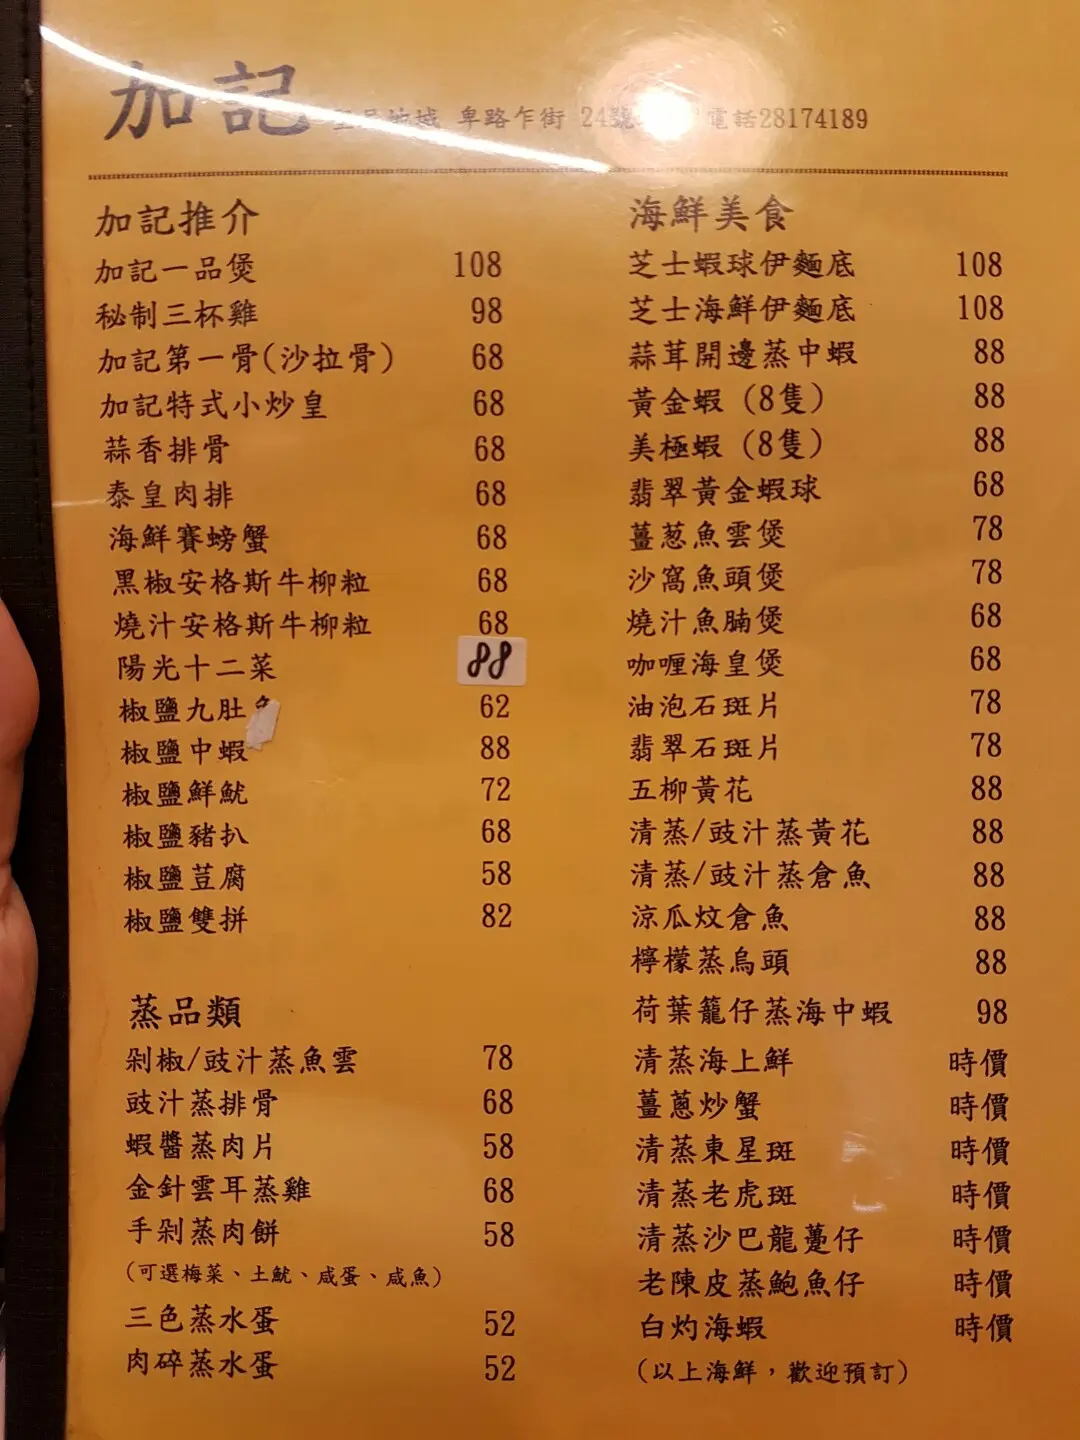 加記 卑路乍街 24號 電話28174189
加記推介
加記一品煲 108
秘制三杯雞 98
加記第一骨(沙拉骨) 68
加記特式小炒皇 68
蒜香排骨 68
泰皇肉排 68
海鮮賽螃蟹 68
黑椒安格斯牛柳粒 68
燒汁安格斯牛柳粒 68
陽光十二菜 88
椒鹽九肚 62
椒鹽中蝦 88
椒鹽鮮魷 72
椒鹽豬扒 68
椒鹽荳腐 58
椒鹽雙拼 82
蒸品類
剁椒/豉汁蒸魚雲 78
豉汁蒸排骨 68
蝦醬蒸肉片 58
金針雲耳蒸雞 68
手剁蒸肉餅 58
(可選梅菜、土魷、咸蛋、咸魚)
三色蒸水蛋 52
肉碎蒸水蛋 52
海鮮美食
芝士蝦球伊麵底 108
芝士海鮮伊麵底 108
蒜茸開邊蒸中蝦 88
黃金蝦 (8隻) 88
美極蝦 (8隻) 88
翡翠黃金蝦球 68
薑葱魚雲煲 78
沙窩魚頭煲 78
燒汁魚腩煲 68
咖喱海皇煲 68
油泡石斑片 78
翡翠石斑片 78
五柳黃花 88
清蒸/豉汁蒸黃花 88
清蒸/豉汁蒸倉魚 88
涼瓜炆倉魚 88
檸檬蒸烏頭 88
荷葉籠仔蒸海中蝦 98
清蒸海上鮮 時價
薑蔥炒蟹 時價
清蒸東星斑 時價
清蒸老虎斑 時價
清蒸沙巴龍躉仔 時價
老陳皮蒸鮑魚仔 時價
白灼海蝦 時價
(以上海鮮，歡迎預訂)